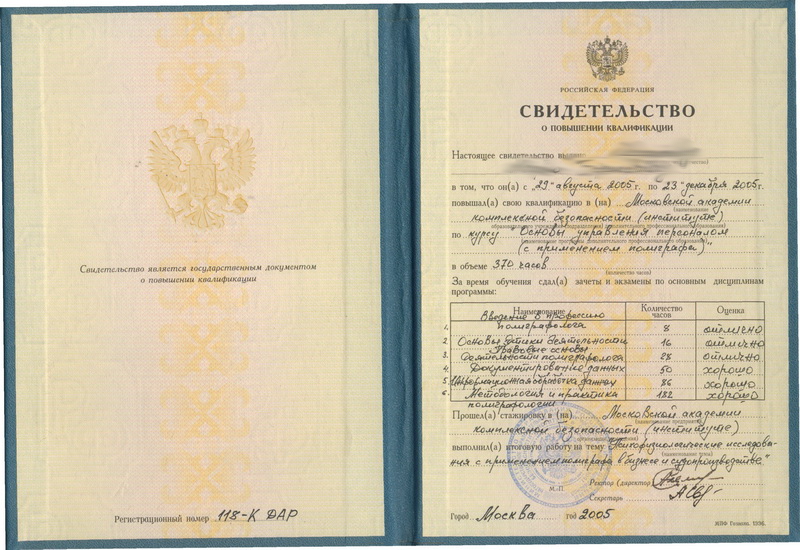 Свидетельство является государственным документом
о повышении квалификации
Регистрационный номер 118-К ДАР
РОССИЙСКАЯ ФЕДЕРАЦИЯ
СВИДЕТЕЛЬСТВО
О ПОВЫШЕНИИ КВАЛИФИКАЦИИ
Настоящее свидетельство
в том, что он(а) с "29" августа 2005 г. по 23 "декабря 2005 г.
повышал(а) свою квалификацию в (на) Московской академии
(наименование
комплексной безопасности (институте)
образовательного
дополнительного профессионального образования)
по курсу "Основы управления персоналом
(наименование программы дополнительного профессионального образования)
(с применением полиграфа)"
в объеме 370 часов
(количество часов)
За время обучения сдал(а) зачеты и экзамены по основным дисциплинам
программы:
Наименование Количество часов Оценка
1. Введение в профессию полиграфолога 8 отлично
2. Основы этики деятельности 16 отлично
3. Правовые основы деятельности полиграфолога 28 отлично
4. Документирование данных 50 хорошо
5. Информационная обработка данных 86 хорошо
6. Методология и практика полиграфологии 182 хорошо
Прошел(а) стажировку в (на) Московской академии
(наименование предприятия,
комплексной безопасности (институте)
выполнил(а) итоговую работу на тему "Психофизиологические исследова-
(наименование темы)
ния с применением полиграфа в бизнесе и судопроизводстве"
Ректор (директор)
М.П.
Секретарь
Город Москва год 2005
МПФ Гознак. 1996.